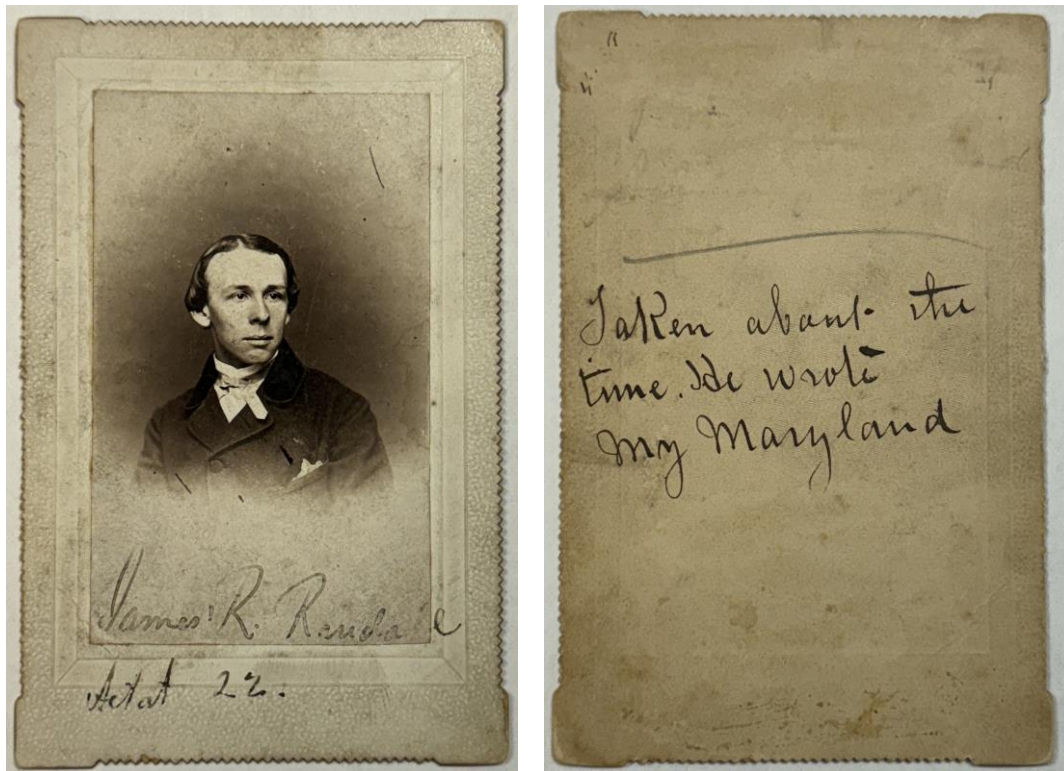 James R. Randall
Aetat 22.
Taken about the
time. He wrote
My Maryland